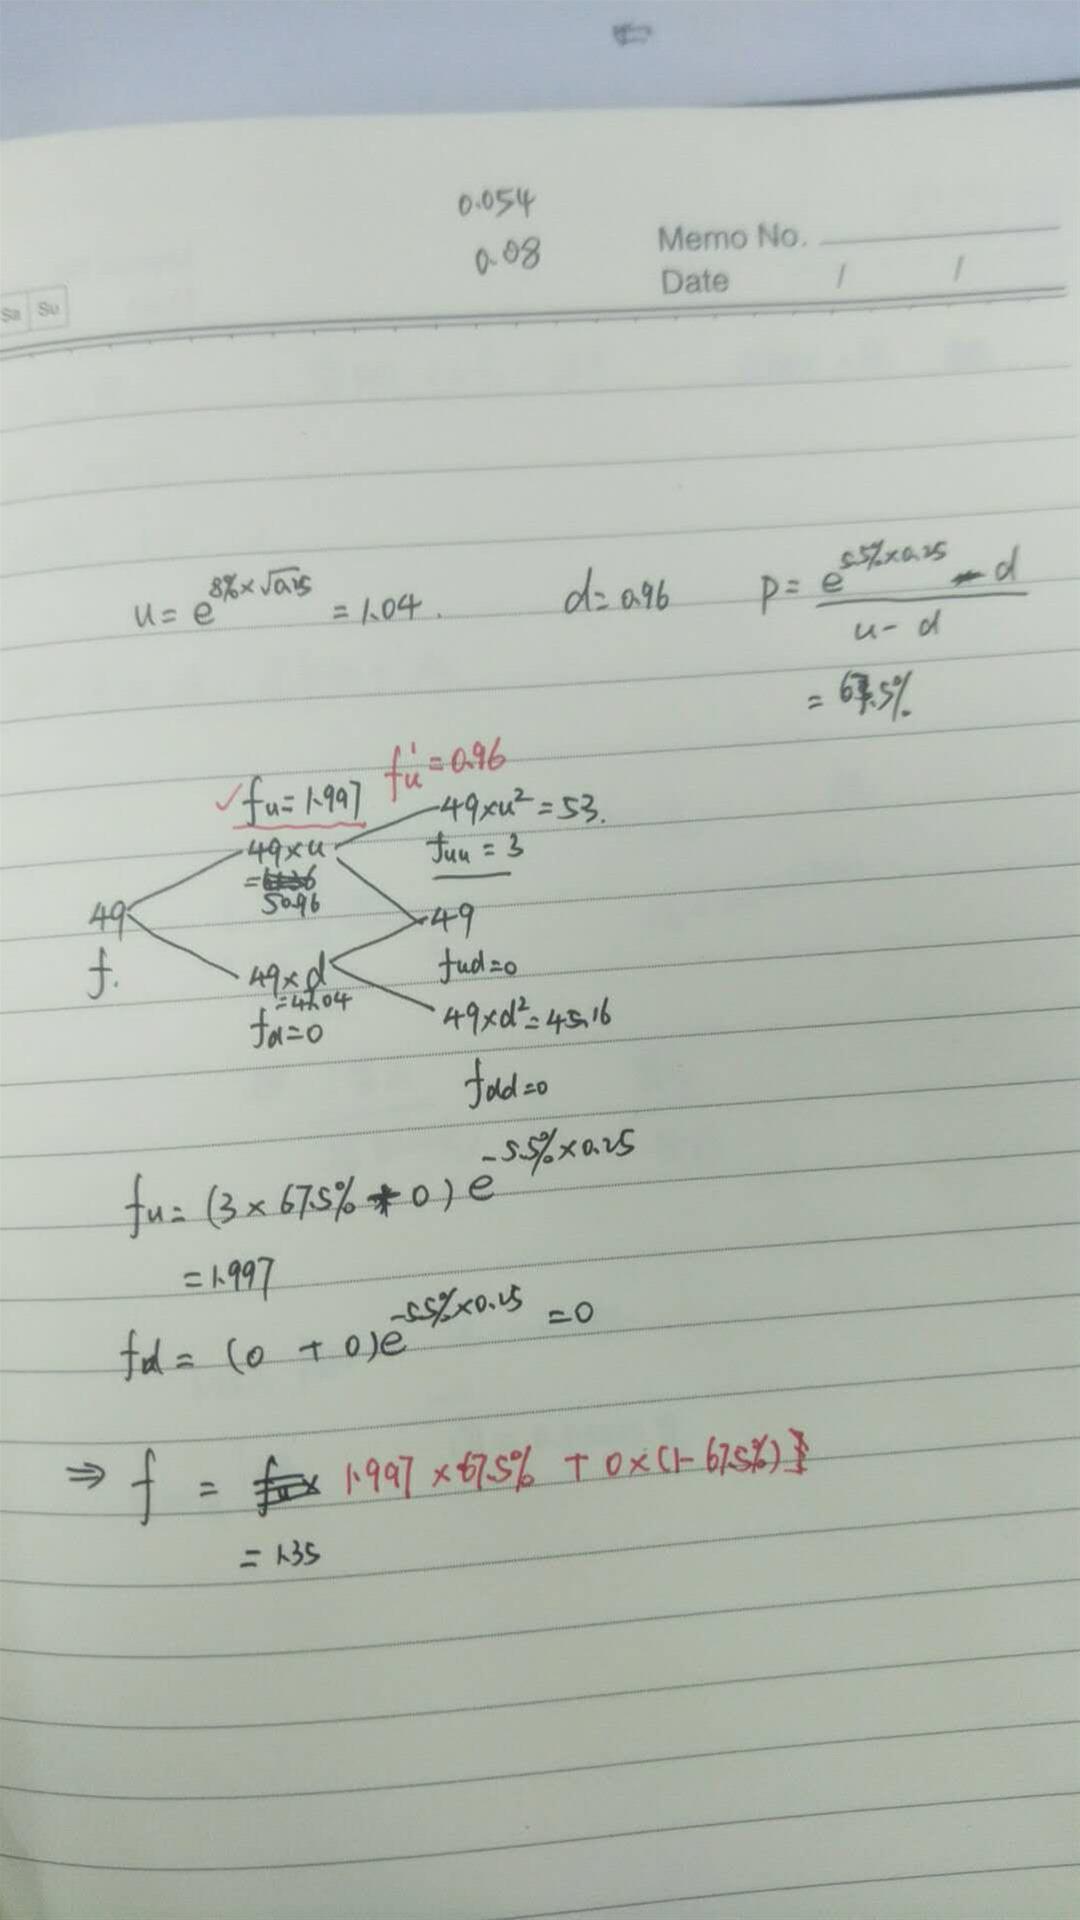 0.054
0.08
Memo No.
Date / /
Sa Su
u = e^{8%×√0.25} = 1.04. d = 0.96 p = \frac{e^{5.5%×0.25} - d}{u - d}
= 67.5%
fu' = 0.96
✓ fu = 1.997
49×u² = 53.
49×u
fuu = 3
=
50.96
49
49
f.
fud = 0
49×d
= 47.04
49×d² = 45.16
fd = 0
fdd = 0
fu = (3 × 67.5% + 0) e^{-5.5%×0.25}
= 1.997
fd = (0 + 0)e^{-5.5%×0.25} = 0
⇒ f = 1.997 × 67.5% + 0×(1-67.5%)}
= 1.35